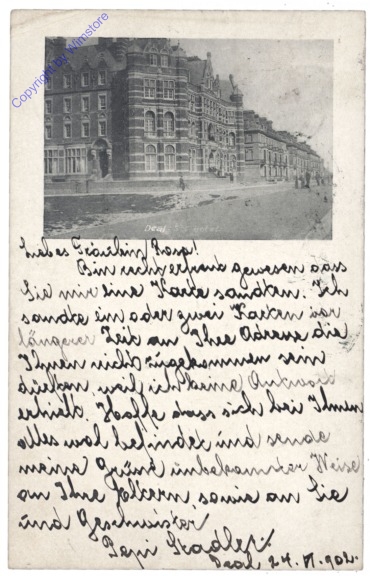 Copyright by Winstore
Deal
Liebes Fräulein Rosa!
Bin recht erfreut gewesen dass
Sie mir eine Karte sandten. Ich
sandte ein oder zwei Karten vor
längerer Zeit an Ihre Adresse die
Ihnen nicht zugekommen sein
dürften, weil ich keine Antwort
erhielt. Hoffe dass sich bei Ihnen
alles wol befindet und sende
meine Grüsse unbekannter Weise
an Ihre Eltern, sowie an Sie
und Geschwister
Pepi Stadler.
Deal 24. 902.